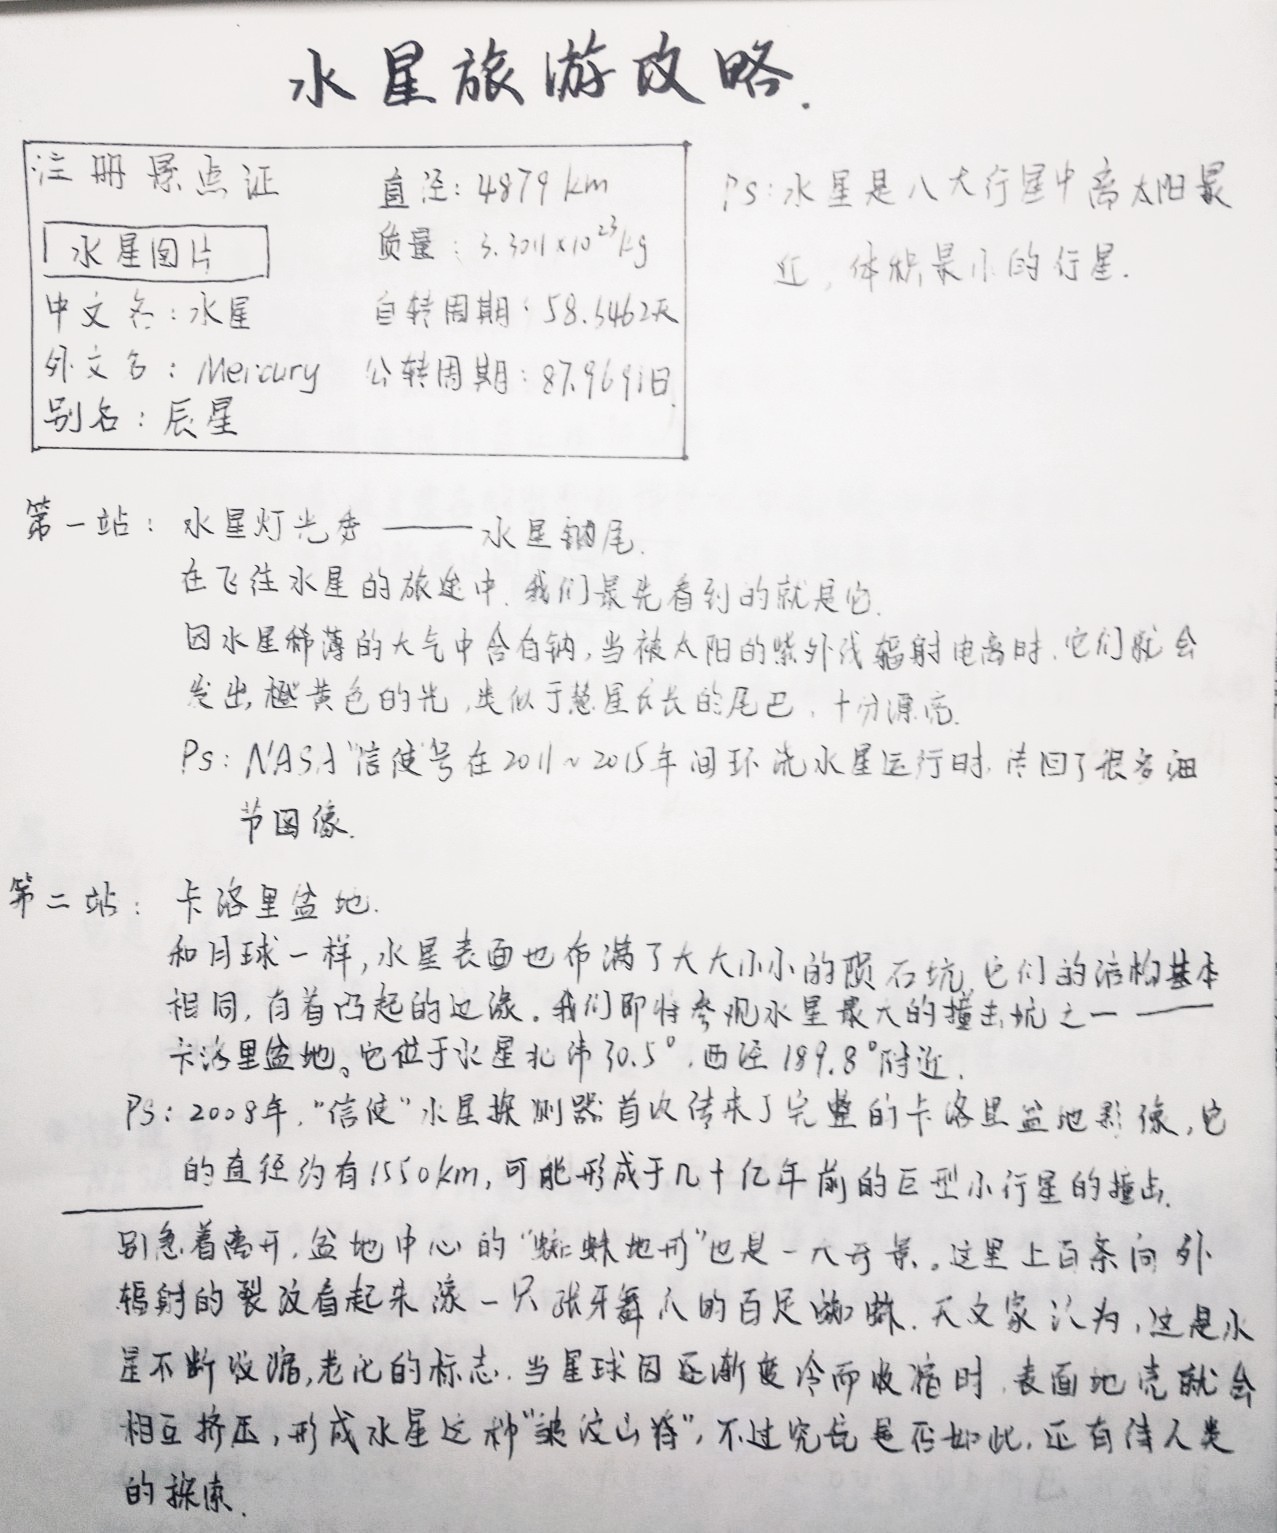 水星旅游攻略.
注册景点证
水星图片
中文名：水星
外文名：Mercury
别名：辰星
直径：4879km
质量：3.3011×10²³kg
自转周期：58.6462天
公转周期：87.9691日.
Ps：水星是八大行星中离太阳最
近，体积最小的行星.
第一站：水星灯光秀——水星钠尾.
在飞往水星的旅途中.我们最先看到的就是它.
因水星稀薄的大气中含有钠,当被太阳的紫外线辐射电离时.它们就会
发出橙黄色的光,类似于彗星长长的尾巴,十分漂亮.
Ps：NASA"信使"号在2011~2015年间环绕水星运行时,传回了很多细
节图像.
第二站：卡洛里盆地.
和月球一样,水星表面也布满了大大小小的陨石坑,它们的结构基本
相同,有着凸起的边缘.我们即将参观水星最大的撞击坑之一——
卡洛里盆地。它位于水星北纬30.5°.西经189.8°附近.
PS：2008年."信使"水星探测器首次传来了完整的卡洛里盆地影像,它
的直径约有1550km,可能形成于几十亿年前的巨型小行星的撞击.
别急着离开,盆地中心的"蜘蛛地形"也是一大奇景。这里上百条向外
辐射的裂纹看起来像一只张牙舞爪的百足蜘蛛.天文家认为,这是水
星不断收缩,老化的标志.当星球因逐渐变冷而收缩时,表面地壳就会
相互挤压,形成水星这种"皱纹山脊",不过究竟是否如此,还有待人类
的探索.